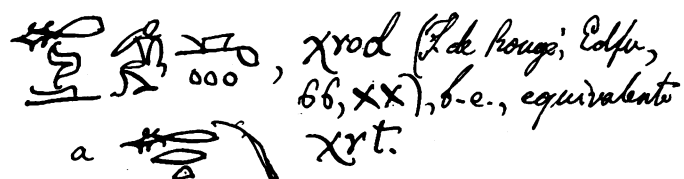 , χrod (J de Rougé, Edfu,
66, xx), b-e., equivalente
a χrt.